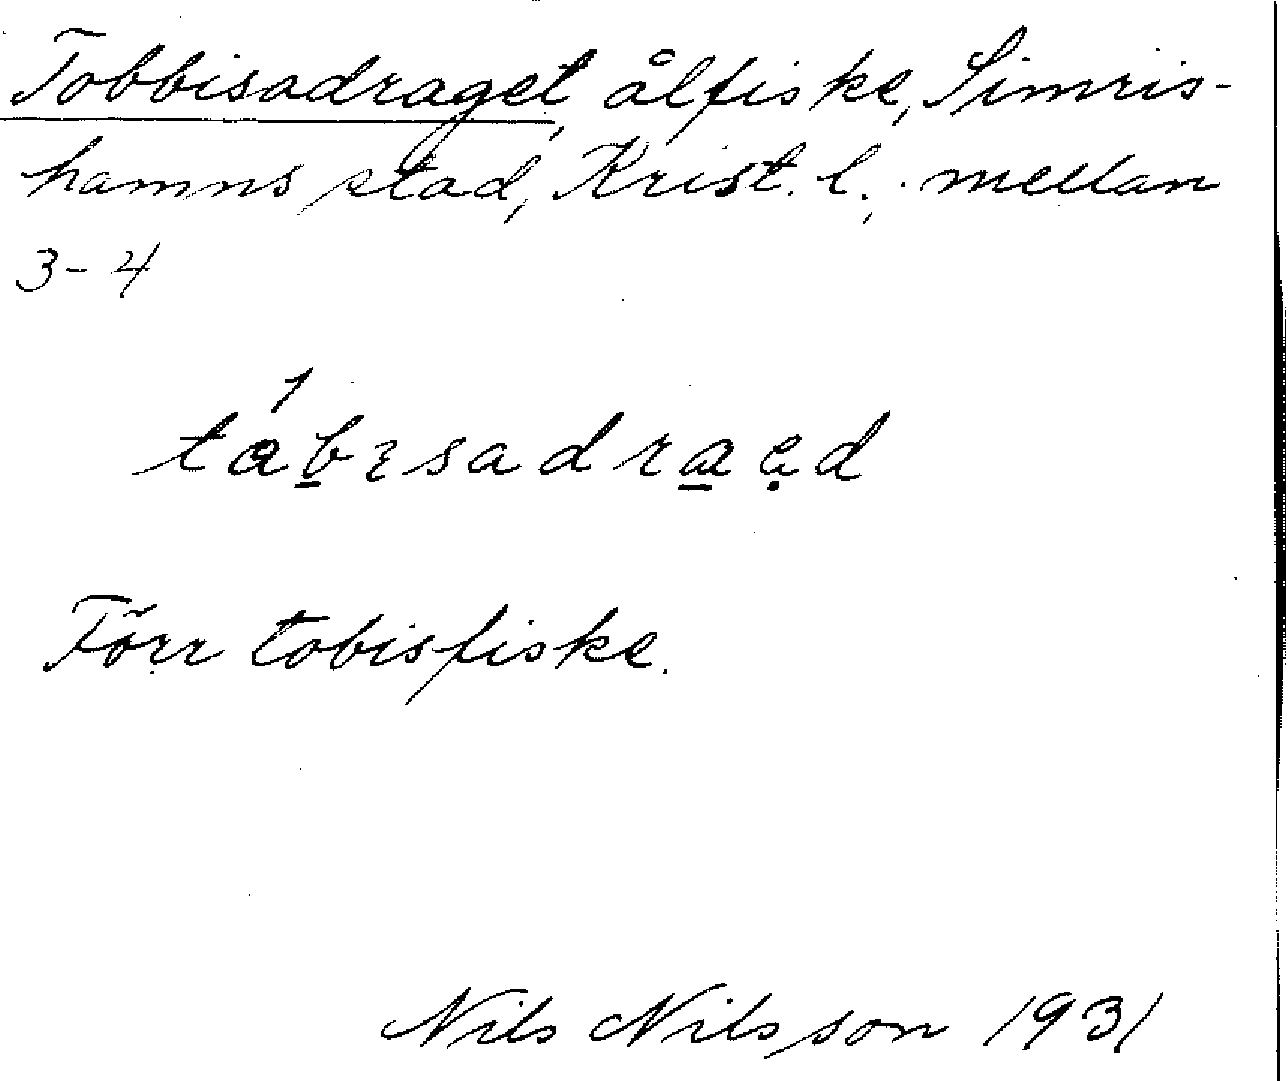 Tobbisadraget, ålfiske, Simris-
hamns stad, Krist. l., mellan
3-4
Förr tobisfiske.
Nils Nilsson 1931